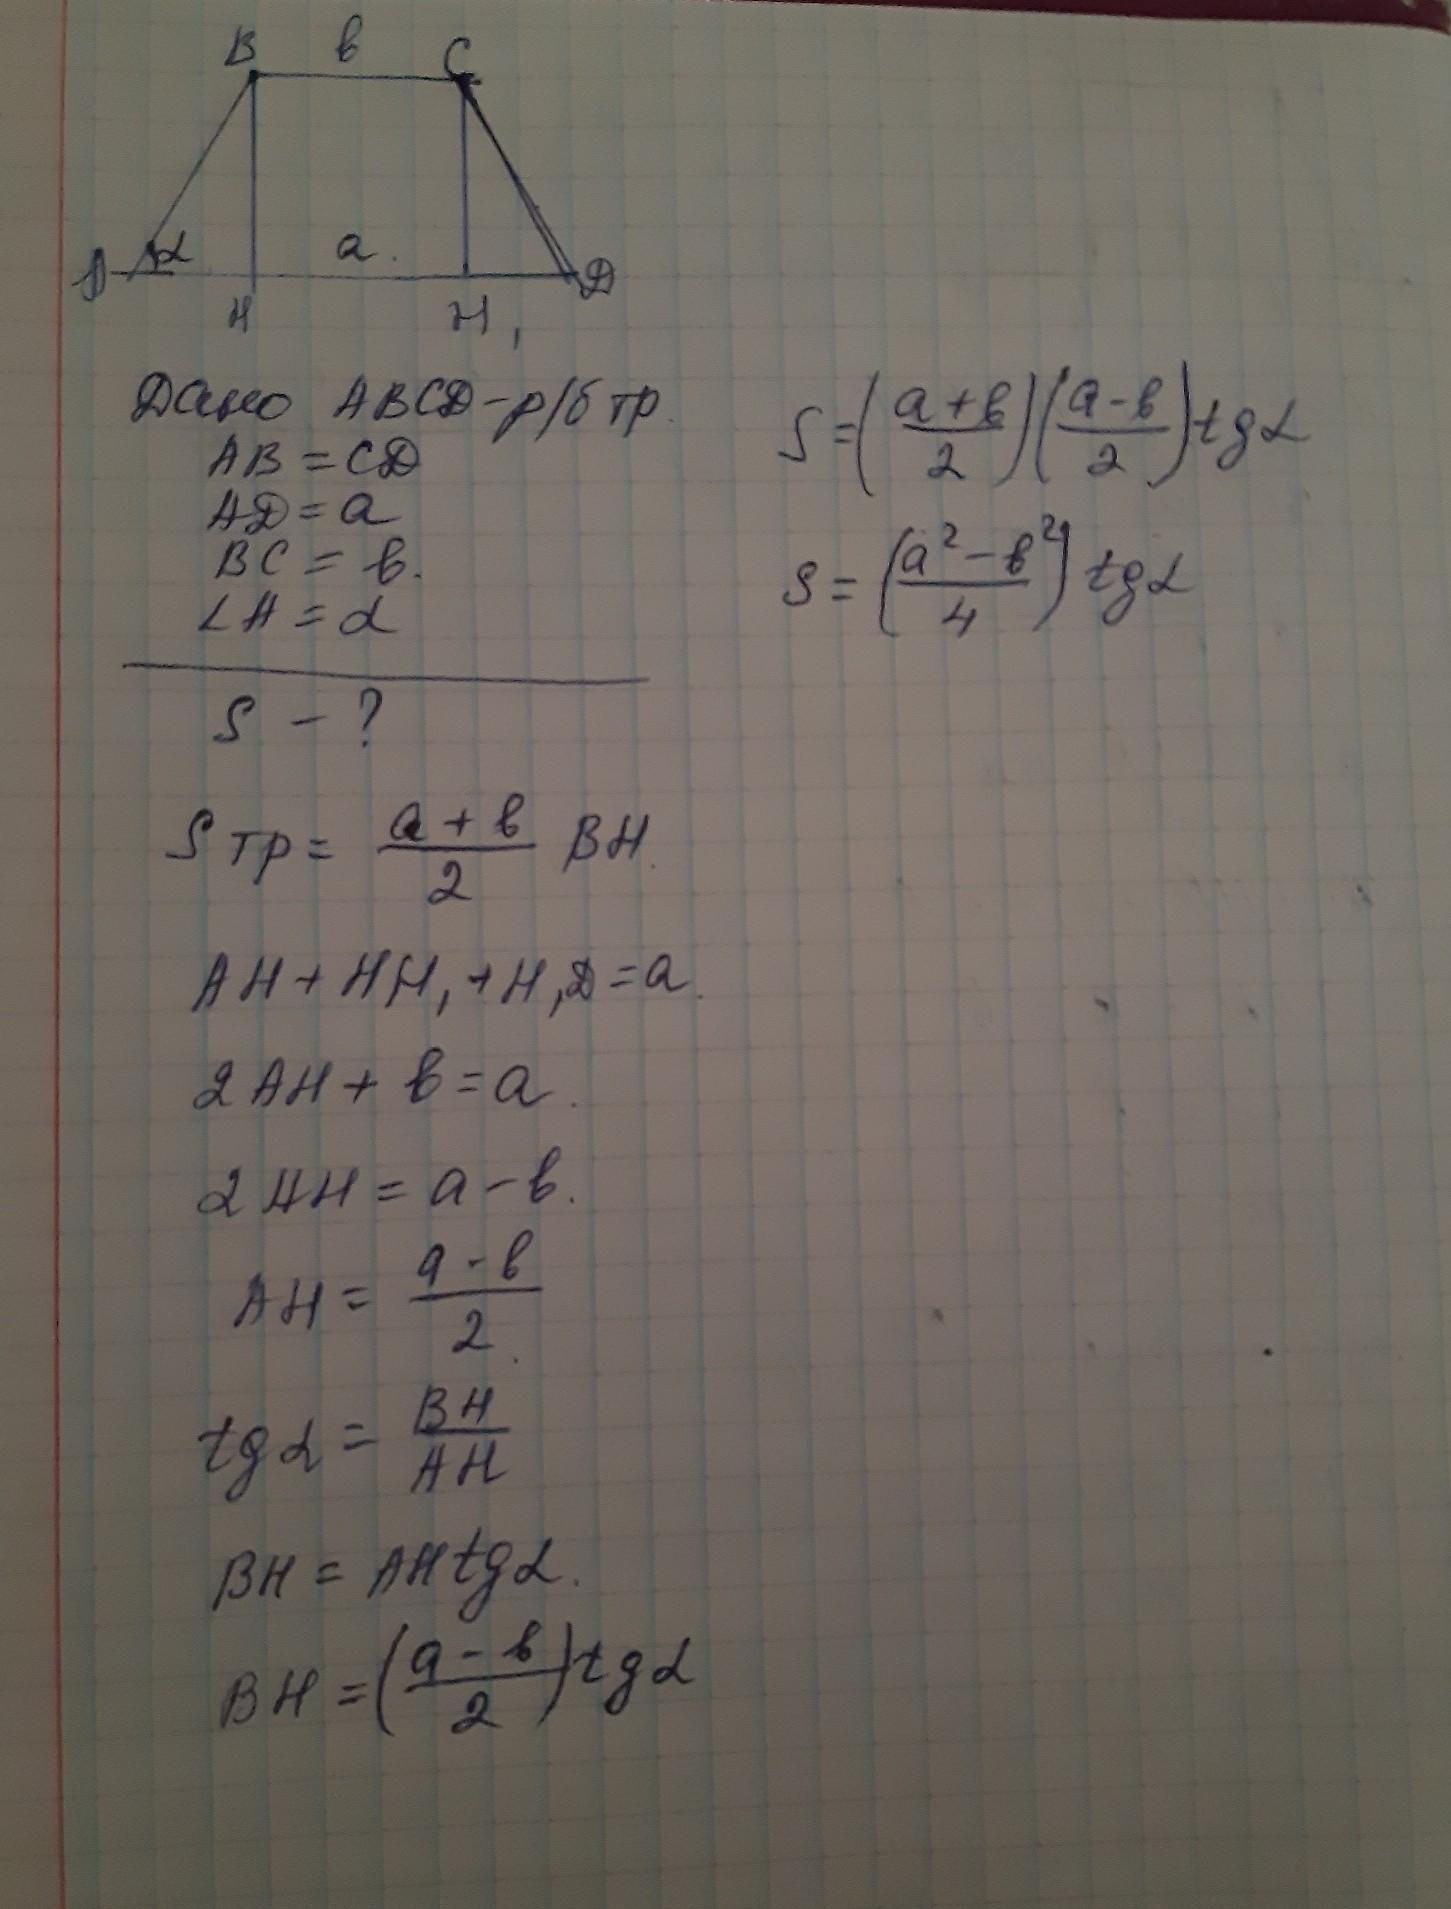 B в C
A α a. D
H H₁
Дано ABCD-р/б тр.
AB = CD
AD = a
BC = в.
∠A = α
S - ?
S тр = (a + в)/2 BH.
AH + HH₁ + H₁D = a.
2AH + в = a.
2AH = a - в.
AH = (a - в)/2.
tgα = BH/AH
BH = AH tgα.
BH = ((a - в)/2) tgα
S = ((a + в)/2) ((a - в)/2) tgα
S = ((a² - в²)/4) tgα